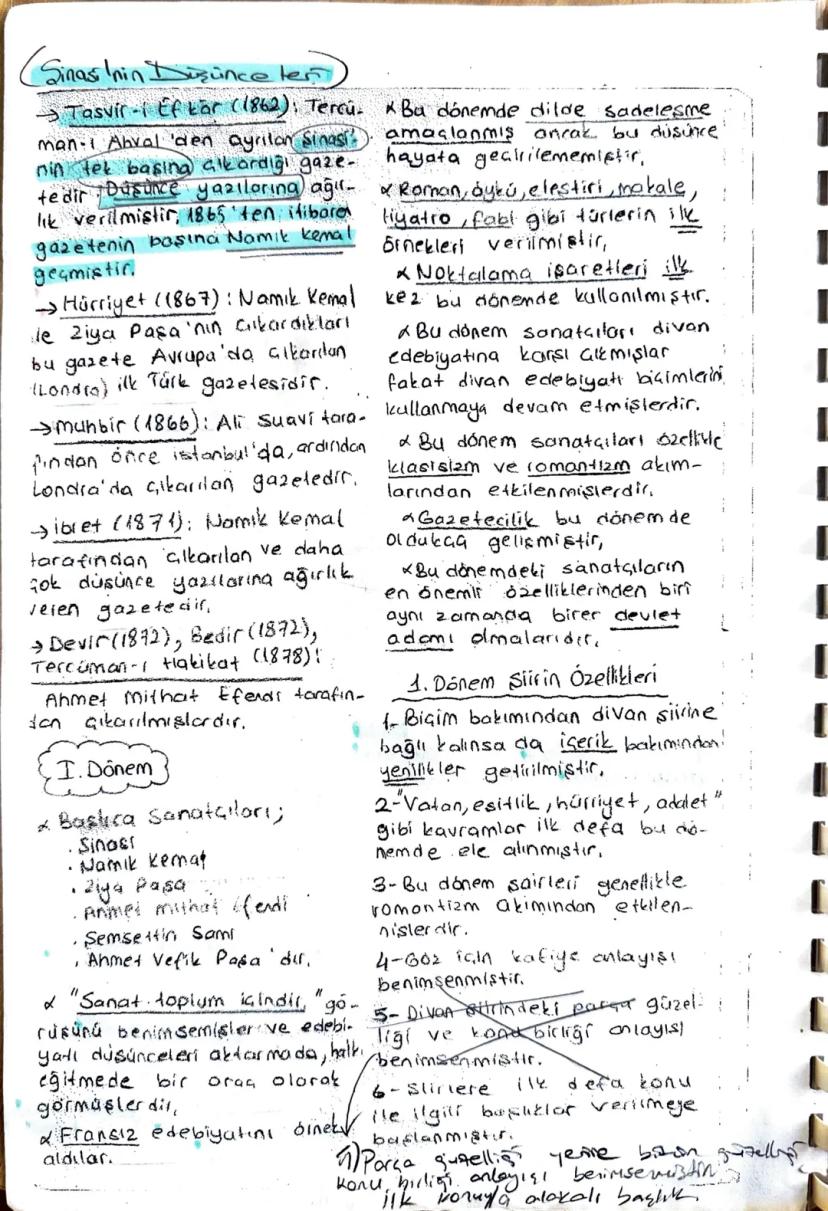 Şinasi'nin Düşünceleri
→ Tasvir-i Efkâr (1862): Tercü-
man-ı Ahval'den ayrılan Şinasi'-
nin tek başına çıkardığı gaze-
tedir. Düşünce yazılarına ağır-
lık verilmiştir. 1865'ten itibaren
gazetenin başına Namık Kemal
geçmiştir.
→ Hürriyet (1867): Namık Kemal
ile Ziya Paşa'nın çıkardıkları
bu gazete Avrupa'da çıkarılan
(Londra) ilk Türk gazetesidir.
→ Muhbir (1866): Ali Suavi tara-
fından önce İstanbul'da, ardından
Londra'da çıkarılan gazetedir.
→ İbret (1871): Namık Kemal
tarafından çıkarılan ve daha
çok düşünce yazılarına ağırlık
veren gazetedir.
→ Devir (1872), Bedir (1872),
Tercüman-ı Hakikat (1878):
Ahmet Mithat Efendi tarafın-
dan çıkarılmışlardır.
I. Dönem
α Başlıca Sanatçıları;
. Şinasi
. Namık Kemal
. Ziya Paşa
. Ahmet Mithat Efendi
. Şemsettin Sami
. Ahmet Vefik Paşa'dır.
α "Sanat toplum içindir." gö-
rüşünü benimsemişler ve edebi-
yatı düşünceleri aktarmada, halkı
eğitmede bir araç olarak
görmüşlerdir.
α Fransız edebiyatını örnek
aldılar.
α Bu dönemde dilde sadeleşme
amaçlanmış ancak bu düşünce
hayata geçirilememiştir.
α Roman, öykü, eleştiri, makale,
tiyatro, fabl gibi türlerin ilk
örnekleri verilmiştir.
α Noktalama işaretleri ilk
kez bu dönemde kullanılmıştır.
α Bu dönem sanatçıları divan
edebiyatına karşı çıkmışlar
fakat divan edebiyatı biçimlerini
kullanmaya devam etmişlerdir.
α Bu dönem sanatçıları özellikle
klasisizm ve romantizm akım-
larından etkilenmişlerdir.
α Gazetecilik bu dönemde
oldukça gelişmiştir.
α Bu dönemdeki sanatçıların
en önemli özelliklerinden biri
aynı zamanda birer devlet
adamı olmalarıdır.
1. Dönem Şiirin Özellikleri
1- Biçim bakımından divan şiirine
bağlı kalınsa da içerik bakımından
yenilikler getirilmiştir.
2- "Vatan, eşitlik, hürriyet, adalet"
gibi kavramlar ilk defa bu dö-
nemde ele alınmıştır.
3- Bu dönem şairleri genellikle
romantizm akımından etkilen-
mişlerdir.
4- Göz için kafiye anlayışı
benimsenmiştir.
5- Divan şiirindeki parça güzel-
liği ve konu birliği anlayışı
benimsenmiştir.
6- Şiirlere ilk defa konu
ile ilgili başlıklar verilmeye
başlanmıştır.
Parça güzelliği yerine bütün güzelliği
konu birliği anlayışı benimsenmiştir
ilk konuyla alakalı başlık.